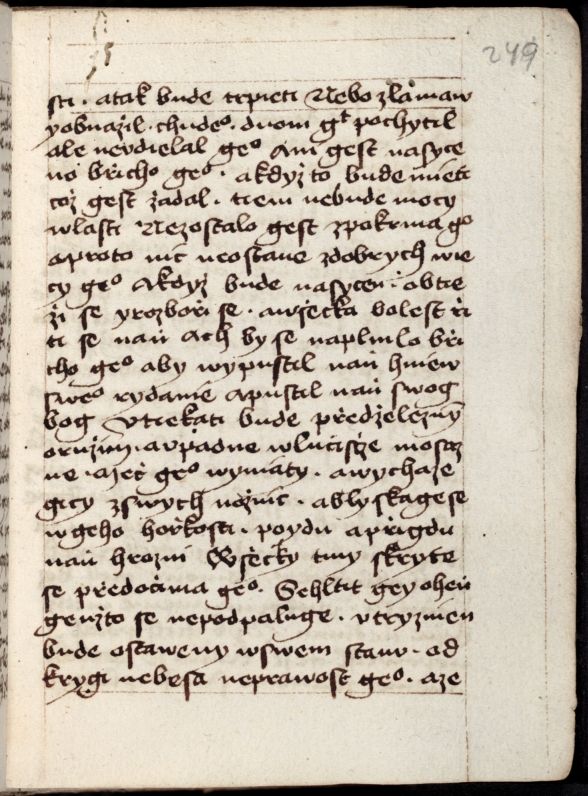 249
sti · atak bude trpieti Nebo zlámaw
yobnažil · chudeº · duom gt pochytil
ale nevdielal geº Ani gest nasyce
no břicho geº · akdyž to bude mieti
což gest žadal · tiem nebude mocy
wlasti Nezostalo gest zpokrma gº
aproto nic neostane zdobrych wie
cy geº Akdyž bude nasycen · obtie
ži se yrozboři se · awšecka bolest ři
ti se naň Ach by se naplnilo bři
cho geº aby wypustil naň hniew
sweº rydanie apustil naň swog
bog Vtiekati bude předželezný
oružim · avpadne wlučišže mosaz
ne · ažeč geº wyniaty · awychaze
gicy zswych nožnic · ablyskagese
wgeho hořkosti · poydu apřigdu
naň hrozni Wšecky tmy skryte
se předočima geº · Sehltit gey oheň
genžto se nepodpaluge · vtryznien
bude ostaweny wswem stanu · od
krygi nebesa neprawost geº · aze